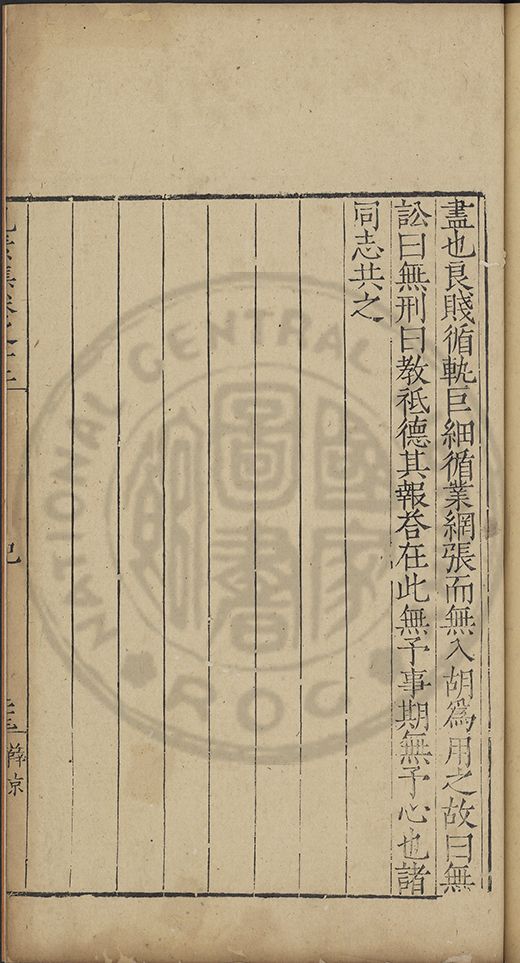 盡也良賤循軌巨細循業網張而無入胡爲用之故曰無
訟曰無刑曰教祗德其報荅在此無予事期無予心也諸
同志共之
記
薛京
NATIONAL CENTRAL
ROC
國家圖書